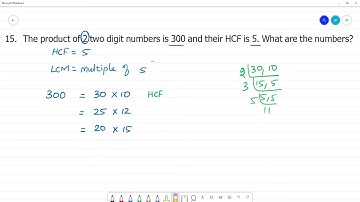 15. The product of 2 two digit numbers is 300 and their HCF is 5. What are the numbers?
HCF = 5
LCM = multiple of 5
300 = 30 × 10 HCF
= 25 × 12
= 20 × 15
2 30, 10
3 15, 5
5 5, 5
1 1